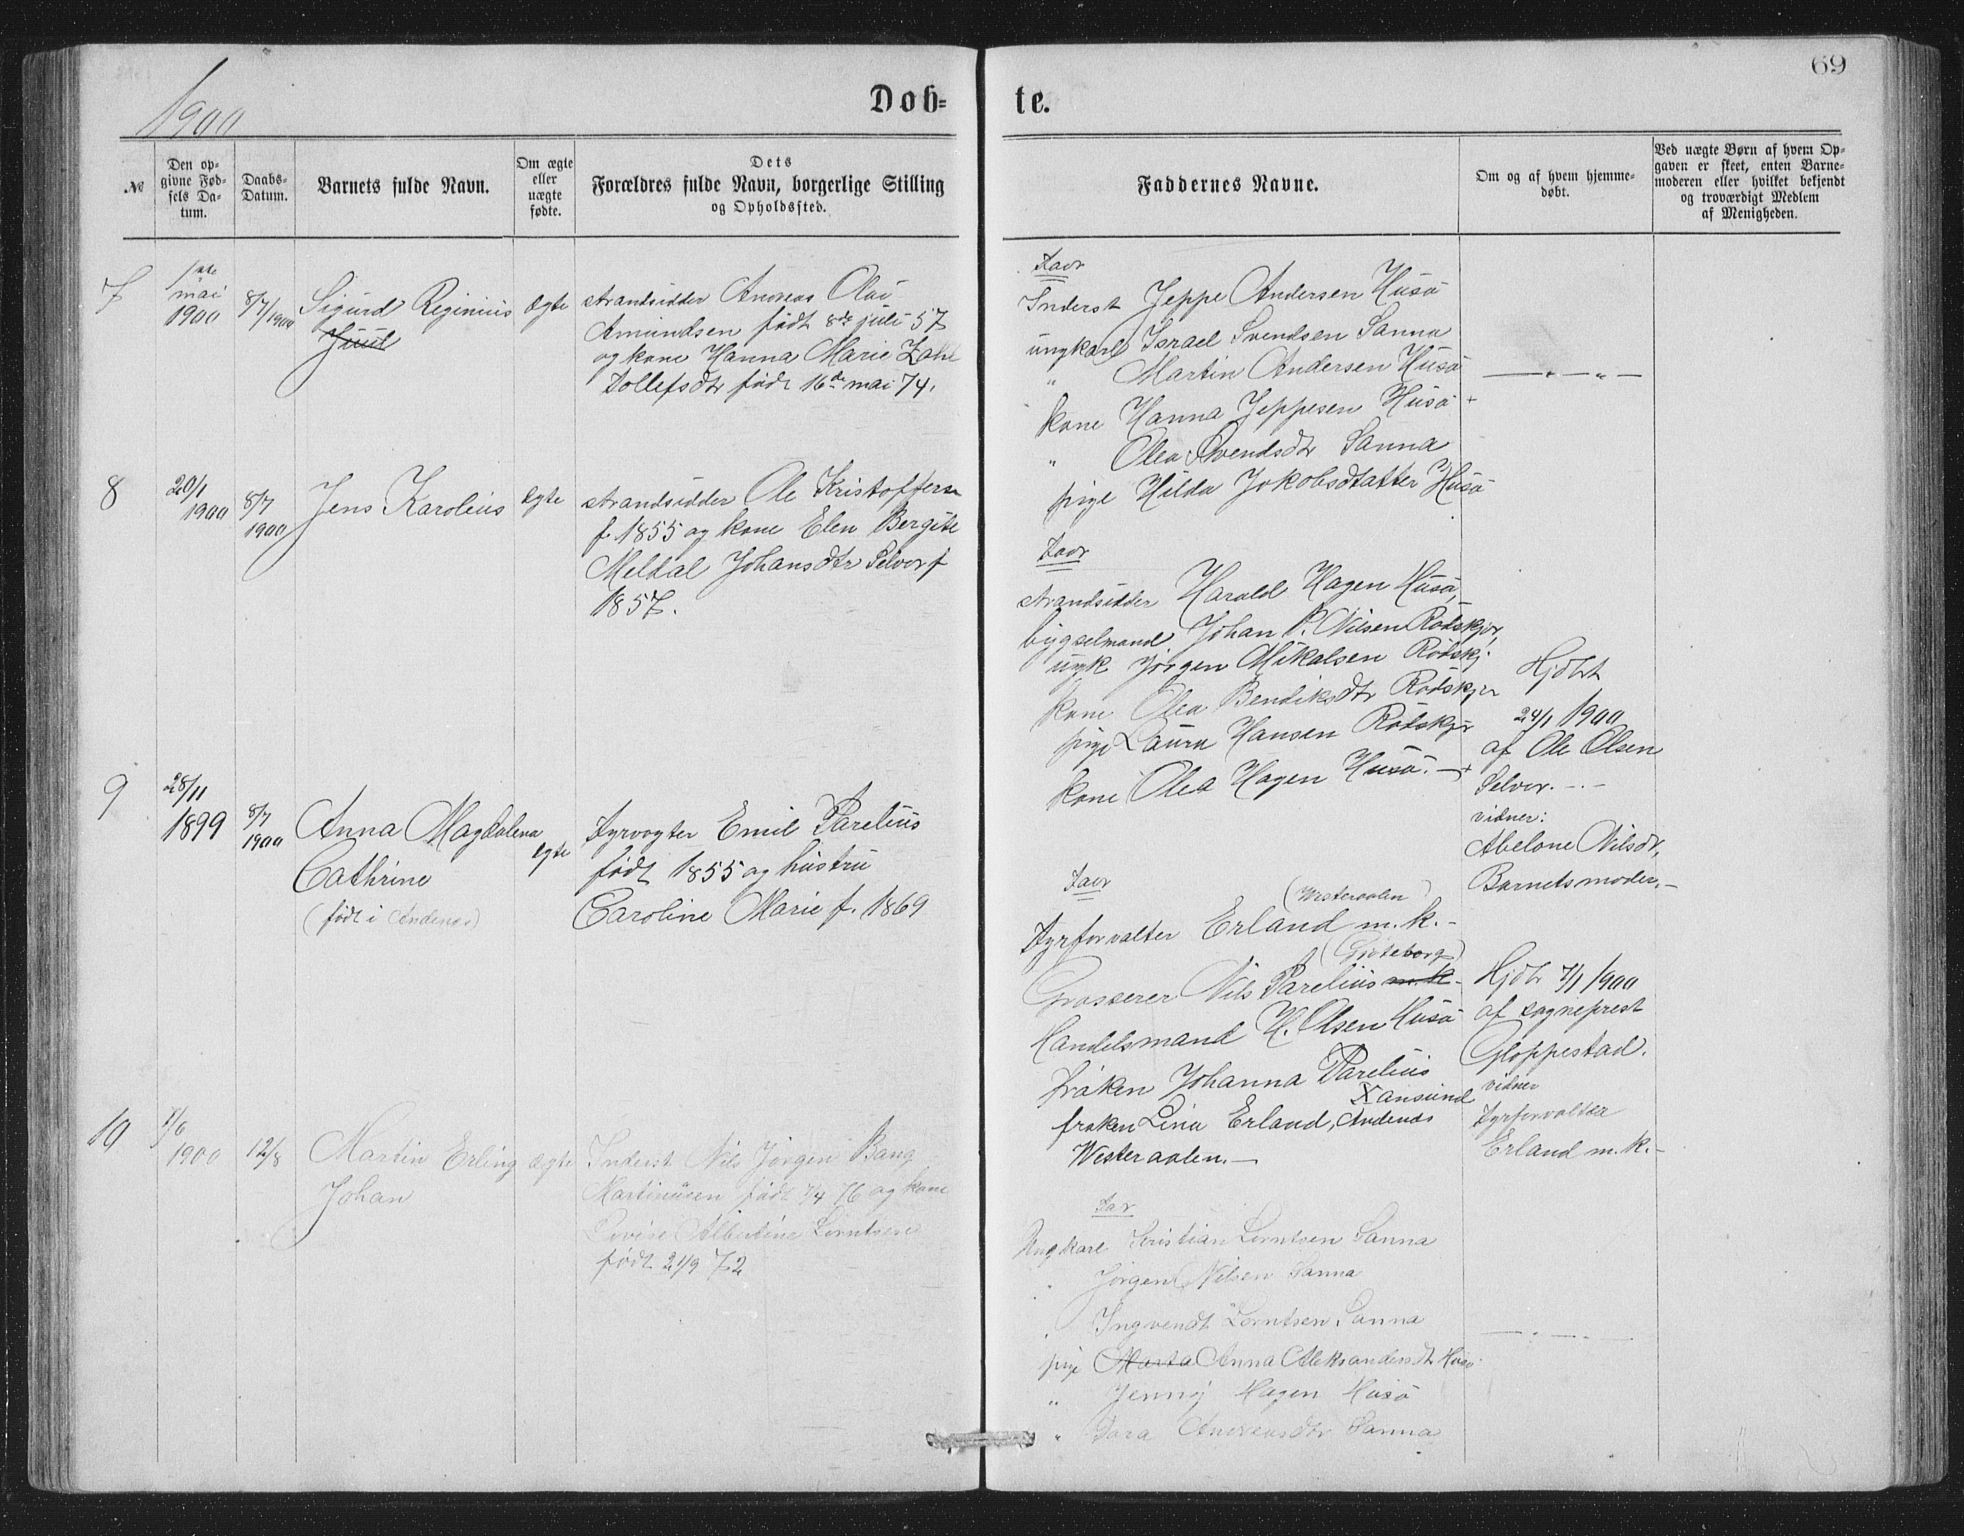 69
1900
Døb-
te.
№
Den op-
givne Fød-
sels Da-
tum.
Daabs-
Datum.
Barnets fulde Navn.
Om ægte
eller
uægte
fødte.
Dets
Forældres fulde Navn, borgerlige Stilling
og Opholdssted.
Faddernes Navne.
Om og af hvem hjemme-
døbt.
Ved uægte Børn af hvem Op-
gaven er skeet, enten Barne-
moderen eller hvilket bekjendt
og troværdigt Medlem
af Menigheden.
7
1ste
mai
1900
8/7/1900
Sigurd Reginius
Juul
Ægte
strandsidder Andreas Olai
Amundsen født 8de juli 57
og kone Hanna Marie Zahl
Dollefsdtr født 16de mai 74.
Favr
Inderst Jeppe Andersen Husø
ungkarl Israel Svendsen Sanna
" Martin Andersen Husø
kone Hanna Jeppesen Husø
" Olea Svendsdtr Sanna
pige Hilda Jokobsdtatter Husø
8
20/1
1900
8/7
1900
Jens Karolius
Ægte
strandsidder Ole Kristoffersen
f. 1855 og kone Elen Bergite
Meldal Johansdtr Selvor f
1857.
Favr
strandsidder Harald Hagen Husø,
bygselmand Johan P. Nilsen Rødskjær,
ungk Jørgen Mikalsen Rødskj.
kone Olea Bendiksdtr Rødskjær
pige Laura Hansen Rødskjær
kone Olea Hagen Husø.
Hjdbt
24/1 1900
af Ole Olsen
Selvor.
vidner:
Abelone Nilsdr,
Barnets moder.
9
28/11
1899
8/7
1900
Anna Magdalena
Cathrine
(født i Andenæs)
Ægte
Fyrvogter Emil Parelius
født 1855 og hustru
Caroline Marie f. 1869
Favr
(Westeraalen)
Fyrforvalter Erland m.k.
(Gøteborg)
Grosserer Nils Parelius m.k.
Handelsmand H. Olsen Husø
frøken Johanna Parelius
Xansund
frøken Lina Erland, Andenæs
Westeraalen.
Hjdbt 7/1 1900
af sogneprest
Gloppestad.
vidner
Fyrforvalter
Erland m.k.
10
1/6
1900
12/8
Martin Erling
Johan
Ægte
Inderst Nils Jørgen Bang
Martinusen født 7/4 76 og kone
Lovise Albertine Lorntsen
født 21/9 72
Fav
Ungkarl Kristian Lorntsen Sanna
" Jørgen Nilsen Sanna
" Ingvendt Lorntsen Sanna
pige Marta Anna Aleksandersdtr Husø
" Jenny Hagen Husø
" Dora Andreasdtr Sanna